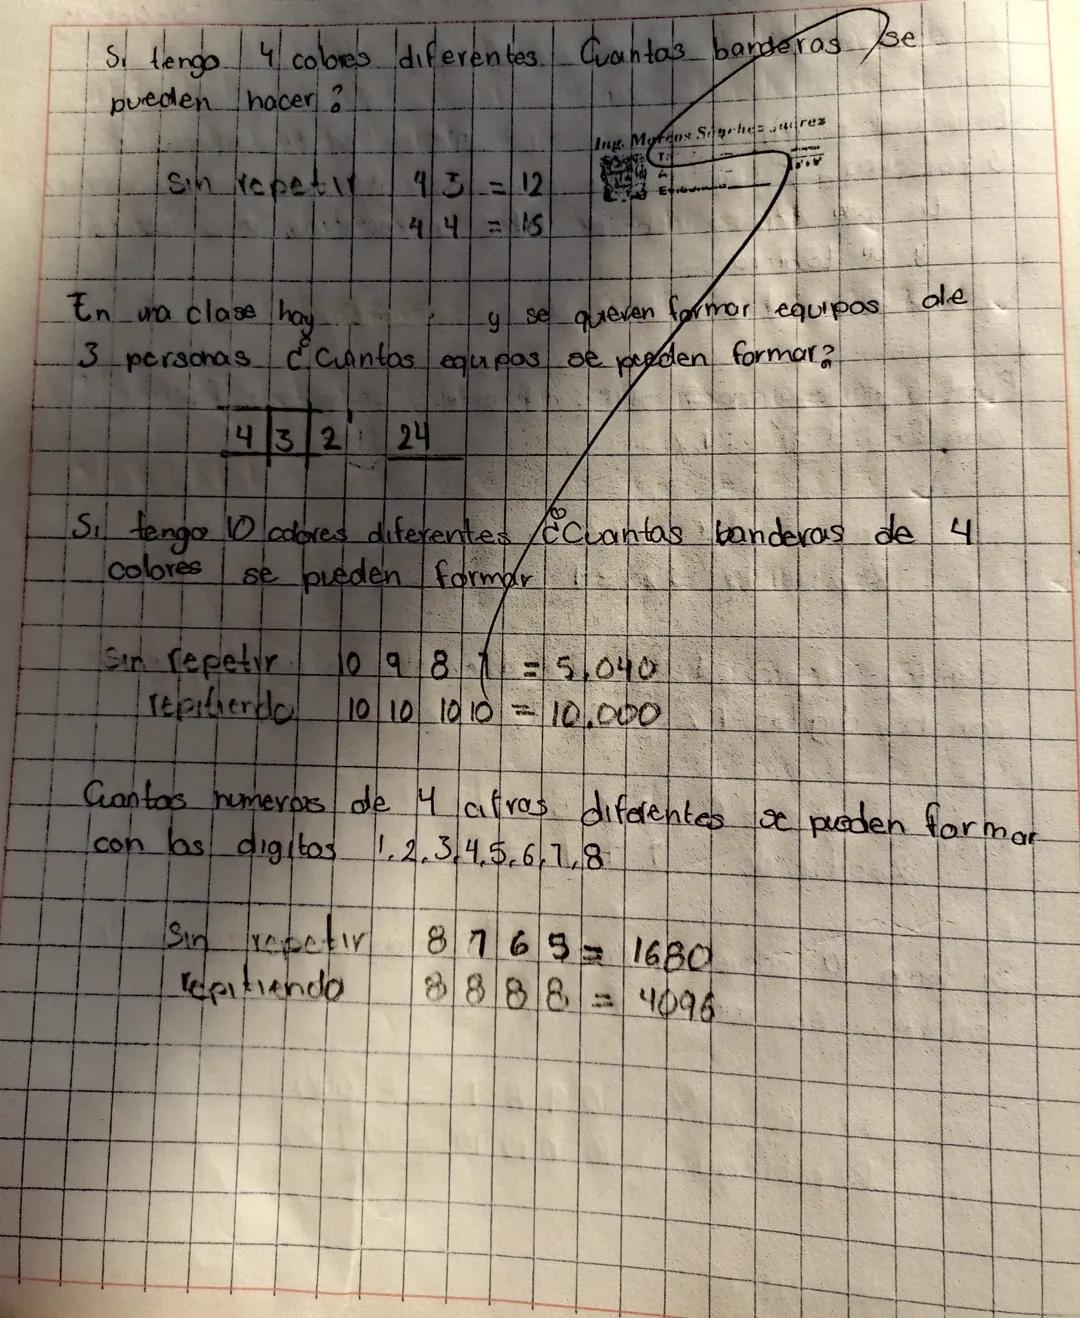 Si tengo 4 colores diferentes Cuantas banderas se
pueden hacer?
Ing. Marcos Sánchez Juárez
Sin repetir 4 3 = 12
4 4 = 16
En una clase hay y se quieren formar equipos de
3 personas ¿Cuantos equipos se pueden formar?
4 3 2 24
Si tengo 10 colores diferentes ¿Cuantas banderas de 4
colores se pueden formar
Sin repetir 10 9 8 7 = 5,040
repitiendo 10 10 10 10 = 10,000
Cuantos numeros de 4 cifras diferentes se pueden formar
con los digitos 1,2,3,4,5,6,7,8
Sin repetir 8 7 6 5 = 1680
repitiendo 8 8 8 8 = 4096